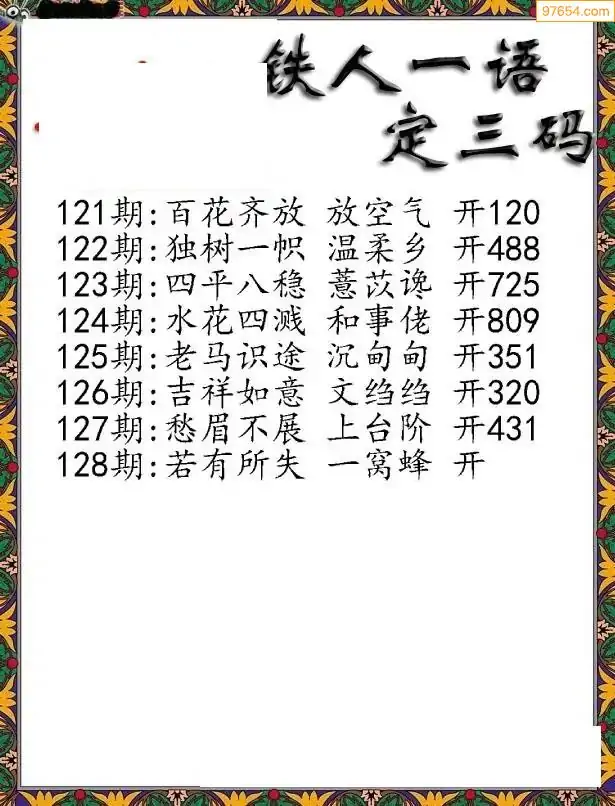 97654.com
铁人一语
定三码
121期:百花齐放 放空气 开120
122期:独树一帜 温柔乡 开488
123期:四平八稳 薏苡谗 开725
124期:水花四溅 和事佬 开809
125期:老马识途 沉甸甸 开351
126期:吉祥如意 文绉绉 开320
127期:愁眉不展 上台阶 开431
128期:若有所失 一窝蜂 开